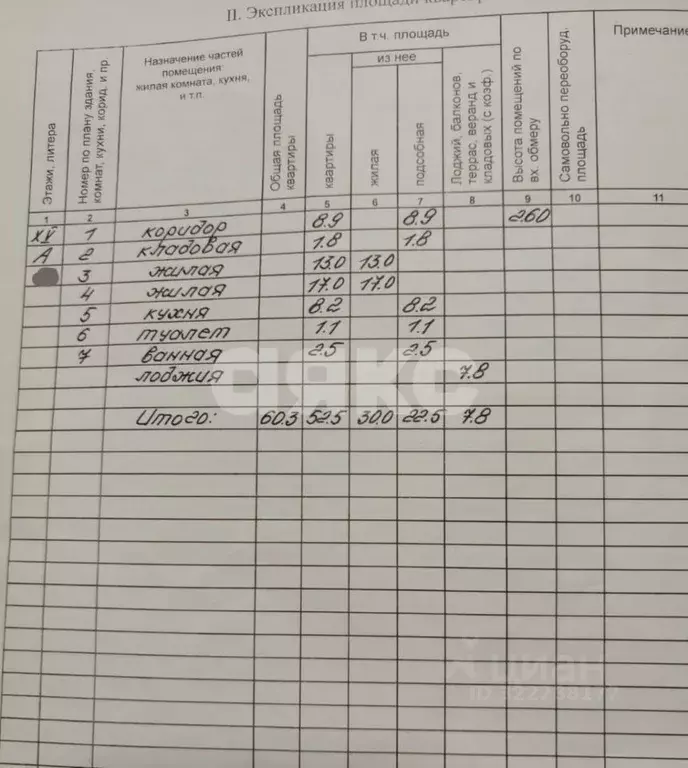 II. Экспликация площади квартир
Этажи, литера
Номер по плану здания, комнат, кухни, корид. и пр.
Назначение частей
помещения:
жилая комната, кухня,
и т.п.
Общая площадь квартиры
В т.ч. площадь
квартиры
из нее
жилая
подсобная
Лоджий, балконов, террас, веранд и кладовых (с коэф.)
Высота помещений по вх. обмеру
Самовольно переоборуд. площадь
Примечание
1 2 3 4 5 6 7 8 9 10 11
XV 1 коридор 8.9 8.9 2.60
А 2 кладовая 1.8 1.8
3 жилая 13.0 13.0
4 жилая 17.0 17.0
5 кухня 8.2 8.2
6 туалет 1.1 1.1
7 ванная 2.5 2.5
лоджия 7.8
Итого: 60.3 52.5 30.0 22.5 7.8
аякс
циан